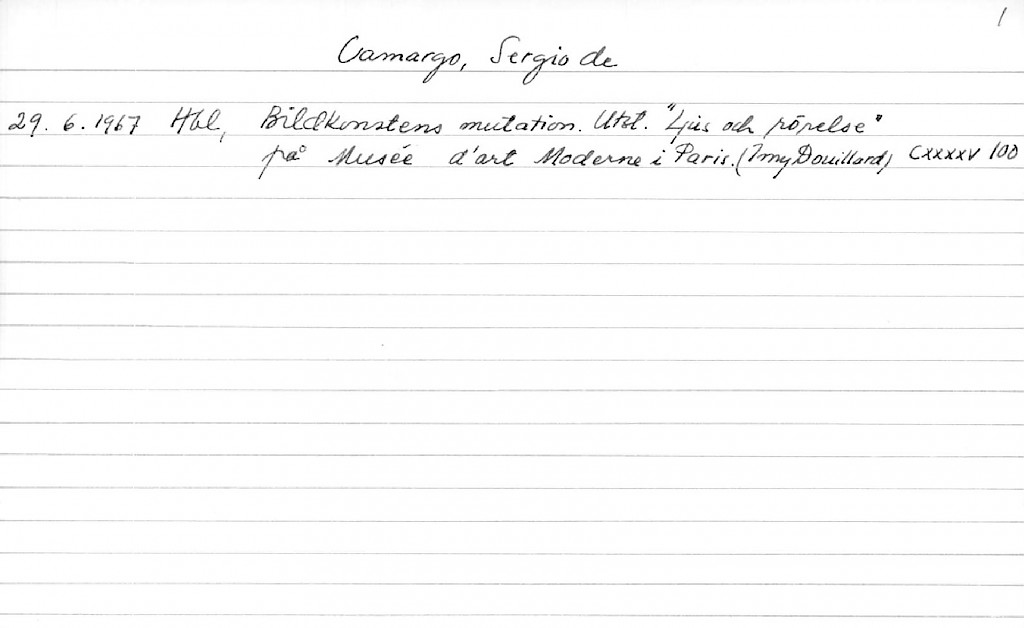 1
Camargo, Sergio de
29. 6. 1967 Hbl, Bildkonstens mutation. Utst. "Ljus och rörelse"
på Musée d'art Moderne i Paris. (Imy Douillard) CXXXXV 100